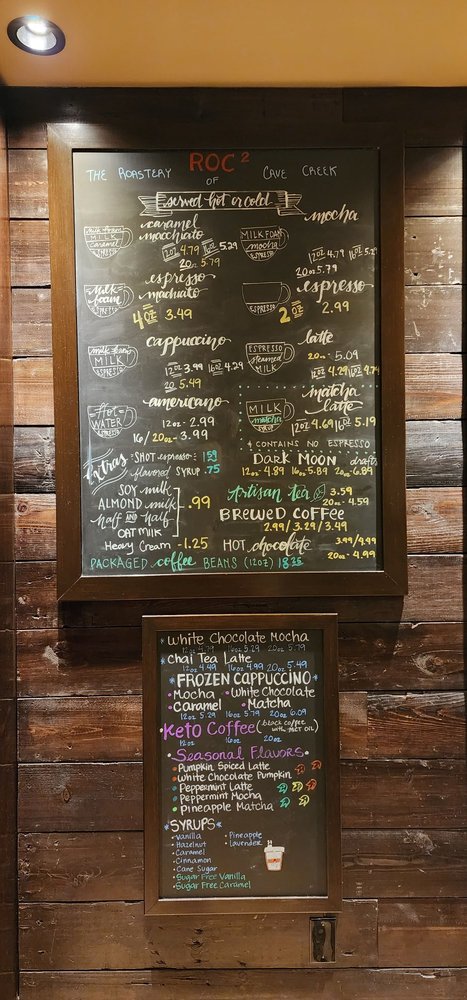 ROC²
THE ROASTERY OF CAVE CREEK
served hot or cold
caramel macchiato
milk foam
MILK
caramel
ESPRESSO
12oz 4.79 16oz 5.29
20oz 5.79
mocha
MILK FOAM
mocha
ESPRESSO
12oz 4.79 16oz 5.29
20oz 5.79
espresso macchiato
Milk foam
ESPRESSO
4oz 3.49
espresso
ESPRESSO
2oz 2.99
cappuccino
milk foam
MILK
ESPRESSO
12oz 3.99 16oz 4.29
20oz 5.49
latte
ESPRESSO
steamed
MILK
20oz - 5.09
12oz 4.29 16oz 4.79
americano
Hot
WATER
ESPRESSO
12oz - 2.99
16/20oz - 3.99
matcha latte
MILK
matcha
SYRUP
12oz 4.69 16oz 5.19
* CONTAINS NO ESPRESSO
Extras
SHOT espresso
flavored SYRUP .75
SOY milk
ALMOND milk
half AND half
OAT MILK
.99
Heavy Cream - 1.25
DARK MOON draft
12oz - 4.89 16oz - 5.89 20oz - 6.89
Artisan tea 3.59
20oz - 4.59
BREWED COFFEE
2.99 / 3.29 / 3.49
HOT chocolate 3.99/4.99
20oz - 4.99
PACKAGED coffee BEANS (12oz)
*White Chocolate Mocha
12oz 4.79 16oz 5.29 20oz 5.79
*Chai Tea Latte
12oz 4.49 16oz 4.99 20oz 5.49
*FROZEN CAPPUCCINO*
• Mocha • White Chocolate
• Caramel • Matcha
12oz 5.29 16oz 5.79 20oz 6.09
*Keto Coffee (black coffee with MCT OIL)
12oz 16oz 20oz
• Seasonal Flavors •
• Pumpkin Spiced Latte
• White Chocolate Pumpkin
• Peppermint Latte
• Peppermint Mocha
• Pineapple Matcha
*SYRUPS*
• Vanilla
• Hazelnut
• Caramel
• Cinnamon
• Cane Sugar
• Sugar Free Vanilla
• Sugar Free Caramel
• Pineapple
• Lavender